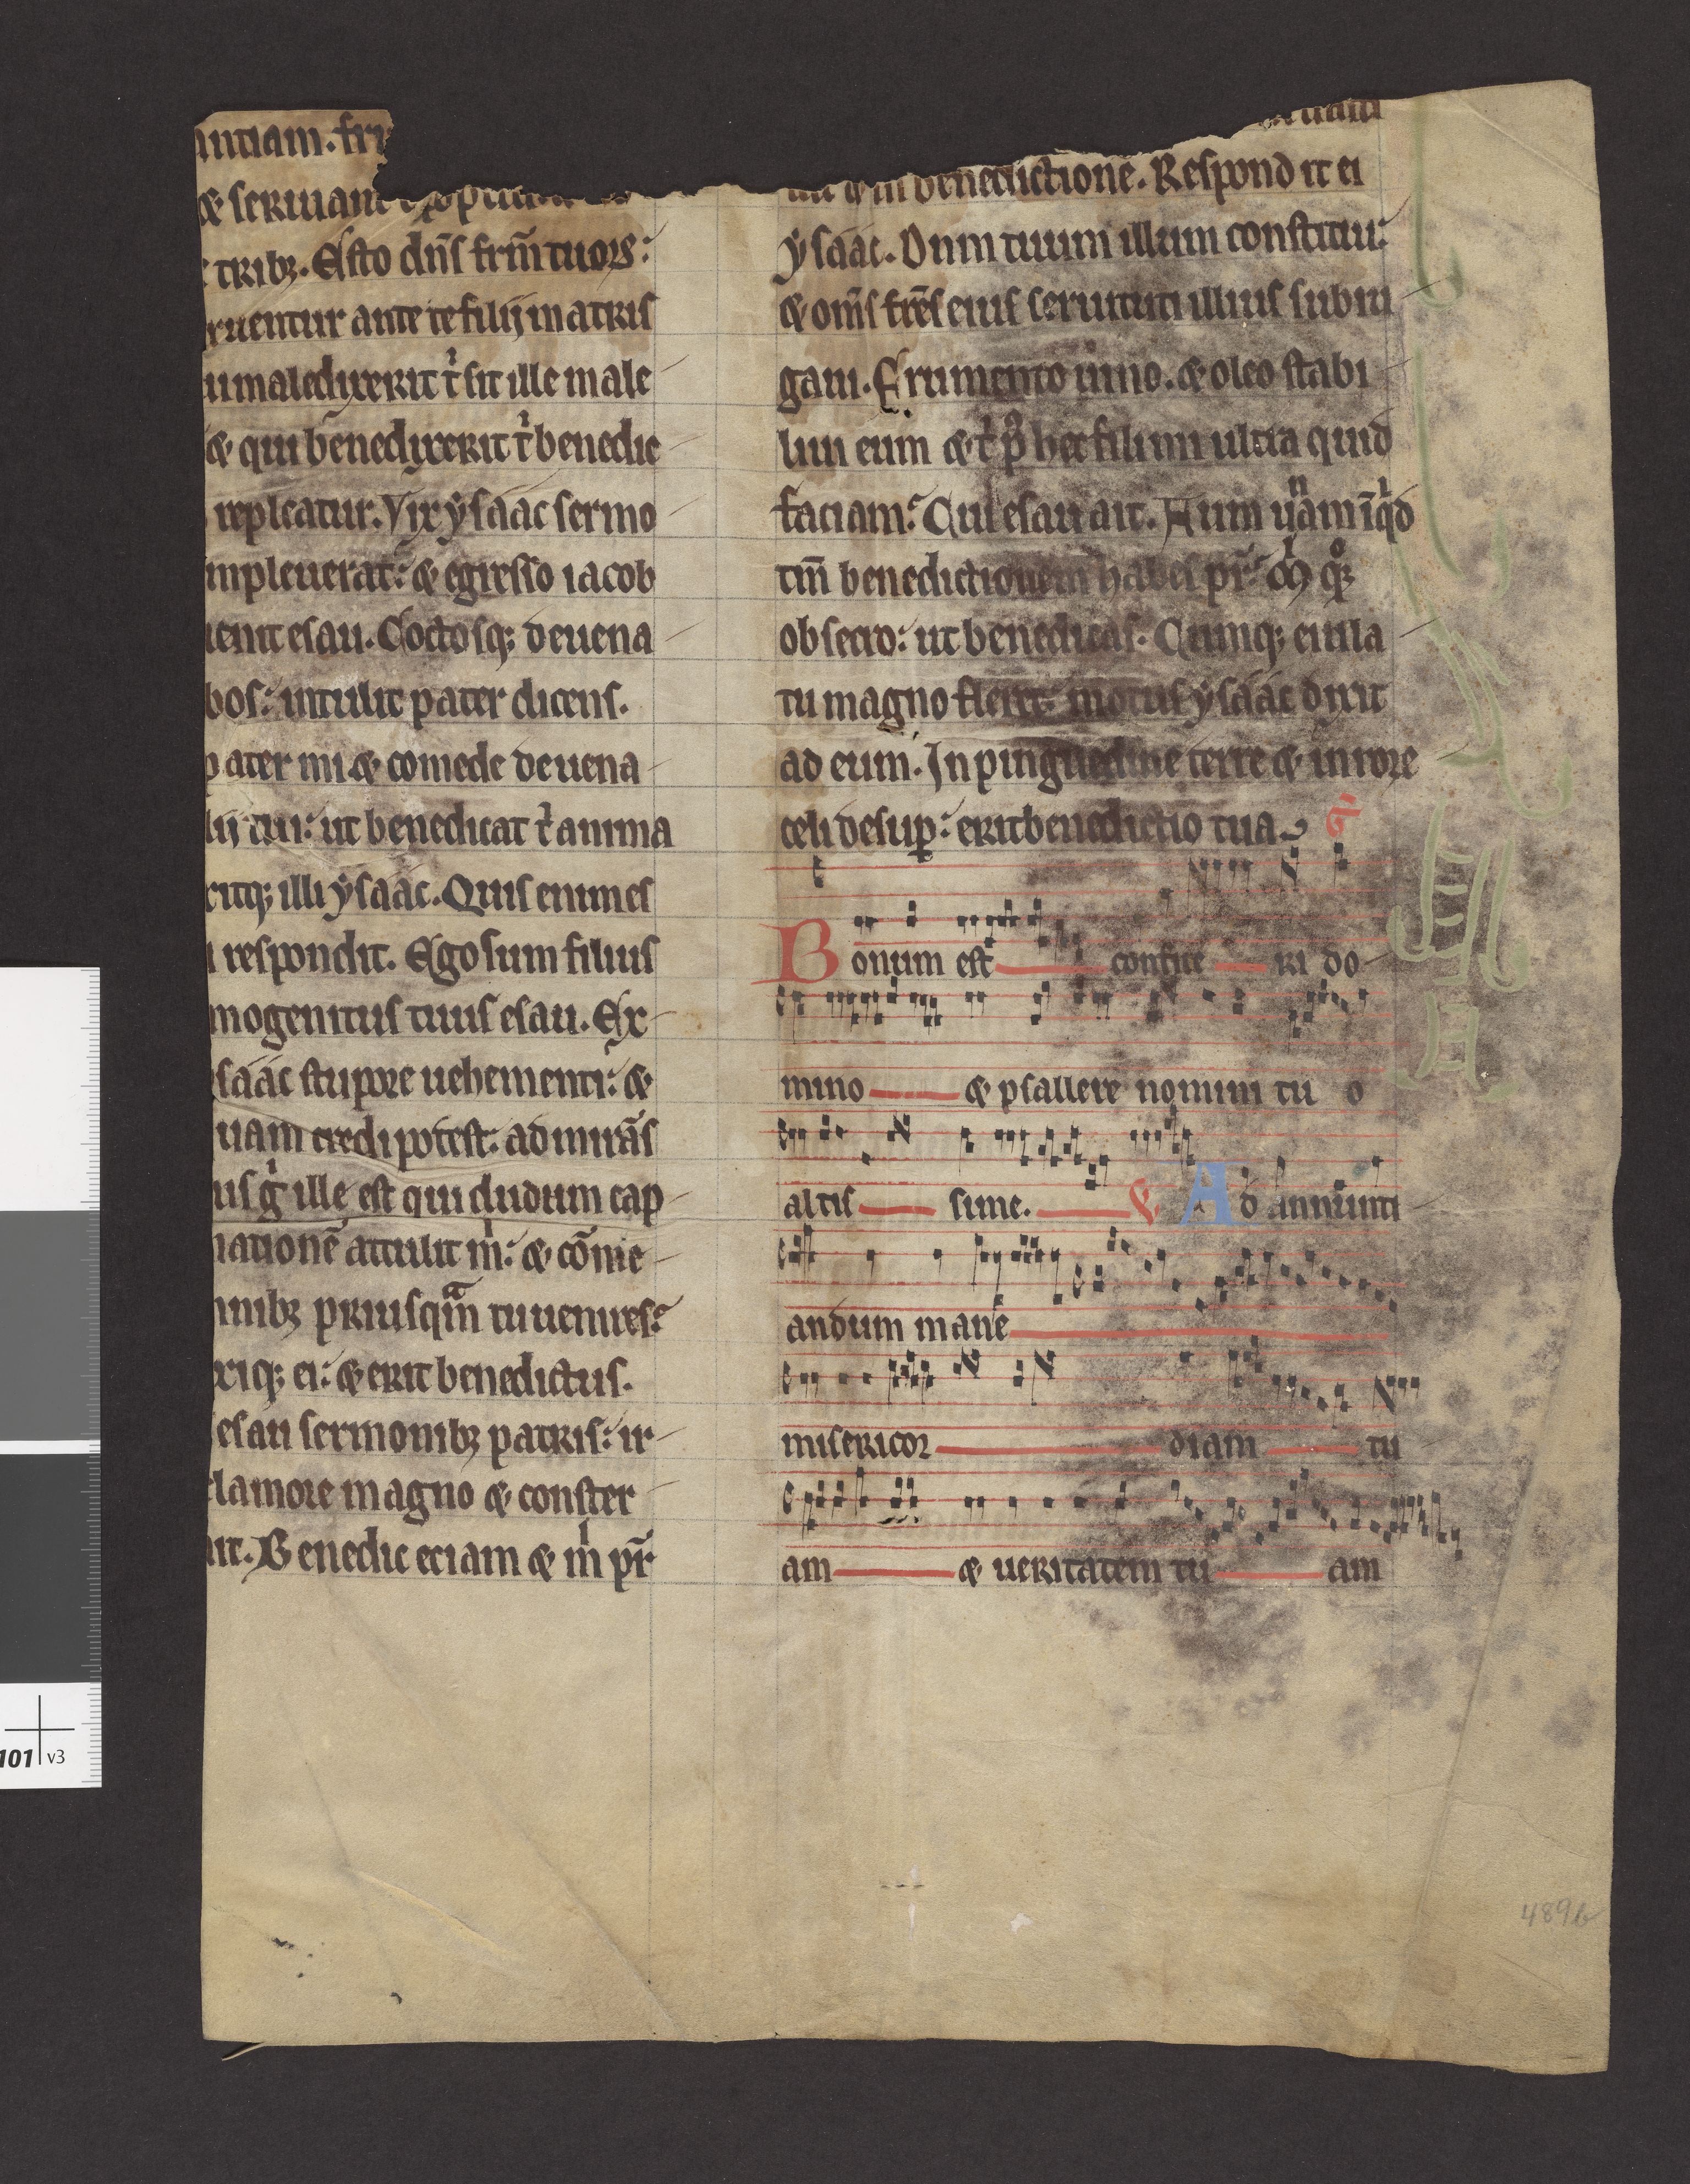 antiam. fru
& seruiant
tribꝫ. Esto dn̄s frm̄ tuoꝝ:
ruentur ante te filij matris
ui maledixerit t̉ sit ille male
& qui benedixerit t̉ benedic
repleatur. Vix ẏsaac sermo
mpleuerat: & egresso iacob
uenit esau. Coctosqꝫ de uena
bos: intulit pater dicens.
pater mi & comede de uena
lij tui: ut benedicat t̉ anima
ritqꝫ illi ẏsaac. Quis enim es
respondit. Ego sum filius
mogenitus tuus esau. Ex
saac stupore uehementi: &
uam credi potest: admirās
uis g̉ ille est qui dudum cap
nationē attulit m̉: & cōme
nibꝫ priusqᵃm tu uenires:
xiqꝫ ei: & erit benedictus.
esau sermonibꝫ patris: ir
clamore magno & conster
ait. Benedic eciam & m̉ pr̄
& in benedictione. Respondit ei
ẏsaac. Dnm tuum illum constitui:
& om̄s fr̄es eius seruituti illius subiu
gaui. Frumento uino. & oleo stabi
liui eum & t̉ p̉ hec fili mi ultra quid
faciam: Cui esau ait. Num unam inqͥd
tm̄ benedictionem habes pr̄: m̉ qꝫ
obsecro: ut benedicas. Cumqꝫ eiula
tu magno fleret: motus ẏsaac dixit
ad eum. In pinguedine terre & in rore
celi desuꝑ: erit benedictio tua. Gͬ
Bonum est confite ri do
mino & psallere nomini tu o
altis sime. V Ad annunti
andum mane
misericor diam tu
am & ueritatem tu am
489b
101 v3